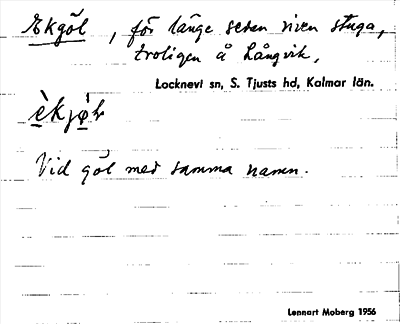 Ekgöl, för länge sedan riven stuga,
troligen å Långvik,
Locknevi sn, S. Tjusts hd, Kalmar län.
Vid göl med samma namn.
Lennart Moberg 1956